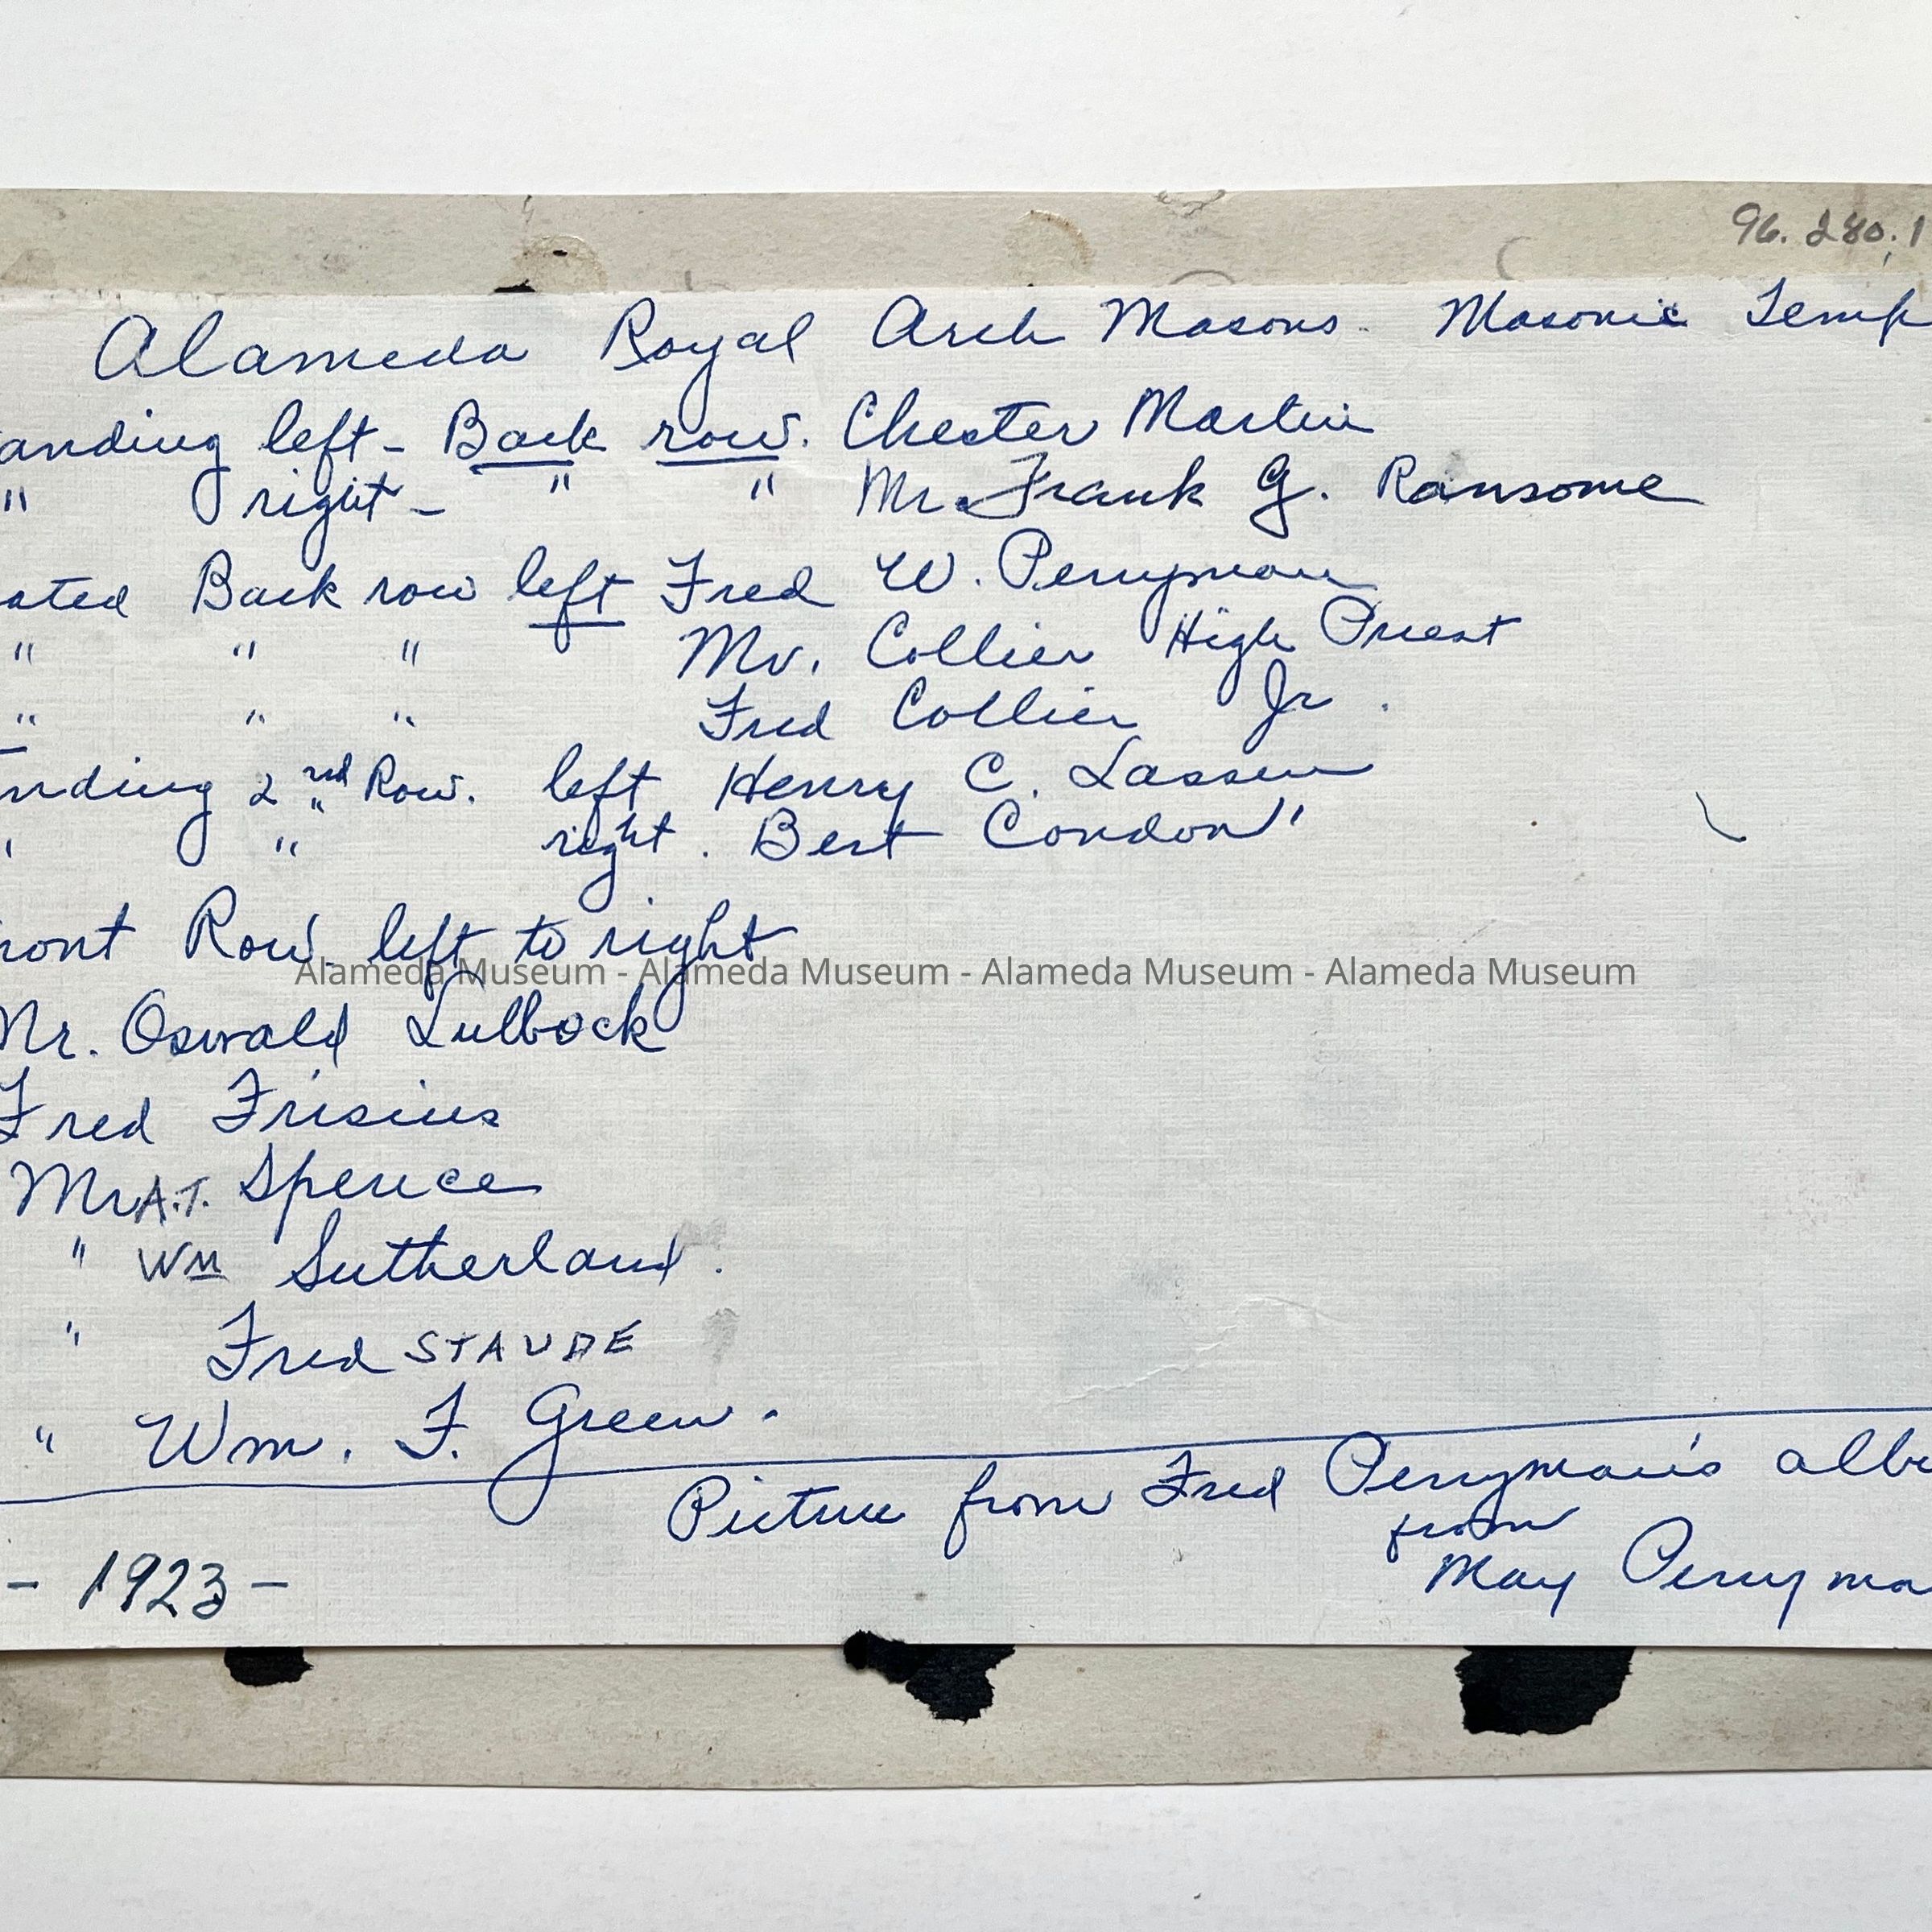 96.280.1
Alameda Royal Arch Masons. Masonic Temp
anding left - Back row. Chester Martin
" right - " " Mr. Frank G. Ransome
ated Back row left Fred W. Perryman
" " " Mr. Collier High Priest
" " " Fred Collier Jr.
nding 2nd Row. left Henry C. Lassen
" " right. Bert Condon"
ront Row. left to right
Alameda Museum - Alameda Museum - Alameda Museum - Alameda Museum
Mr. Oswald Lubbock
Fred Frisius
Mr A.T. Spence
" Wm Sutherland.
" Fred STAUDE
" Wm. F. Green.
Picture from Fred Perryman's albu
from
May Perryma
- 1923 -